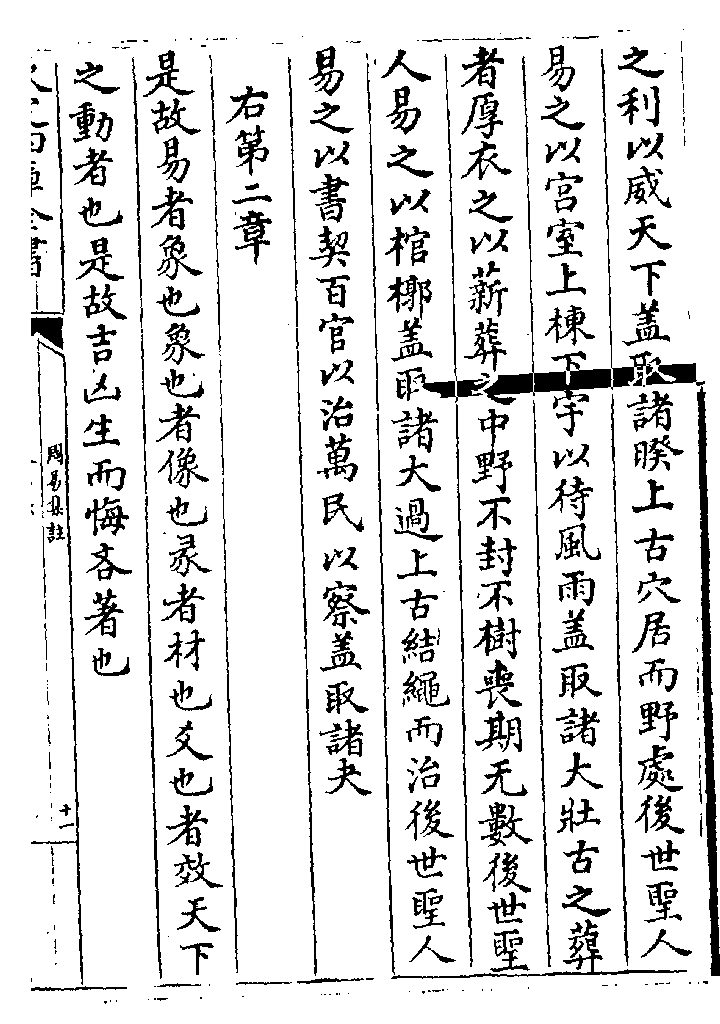 之利以威天下盖取諸睽上古穴居而野處後世聖人
易之以宮室上棟下宇以待風雨盖取諸大壯古之葬
者厚衣之以薪葬之中野不封不樹喪期无數後世聖
人易之以棺槨盖取諸大過上古結繩而治後世聖人
易之以書契百官以治萬民以察盖取諸夬
右第二章
是故易者象也象也者像也彖者材也爻也者效天下
之動者也是故吉凶生而悔吝著也
周易集註
十一